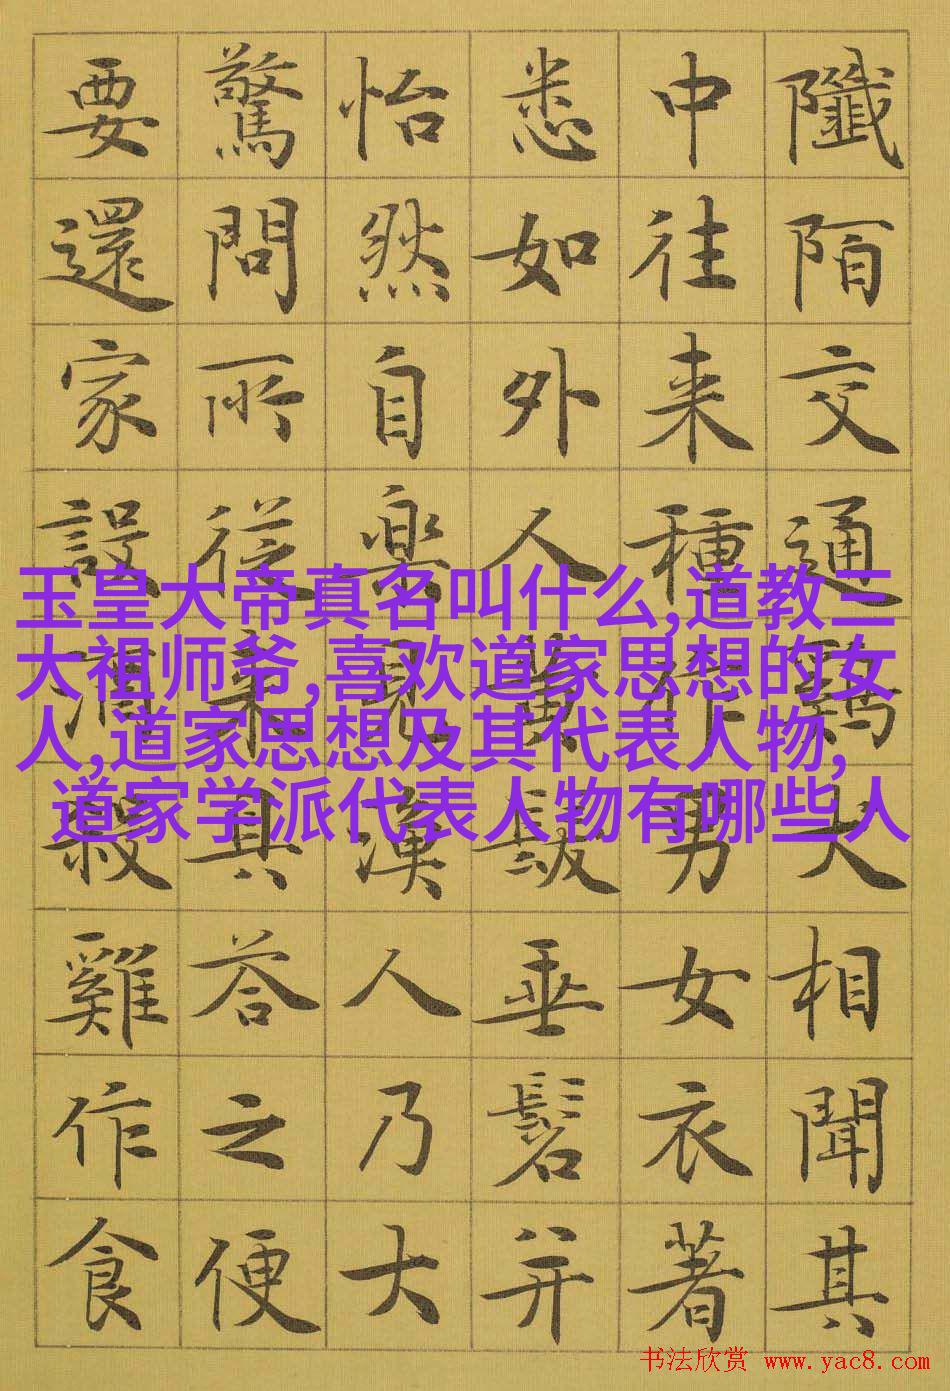 陌交通鷄犬相聞其
中往来種作男女衣著
悉如外人黄髮垂髫并
怡然自楽見漁人乃大
驚問所從来具答之便
要還家設酒殺雞作食
玉皇大帝真名叫什么,道教三
大祖师爷,喜欢道家思想的女
人,道家思想及其代表人物,
道家学派代表人物有哪些人
书法欣赏 www.yac8.com